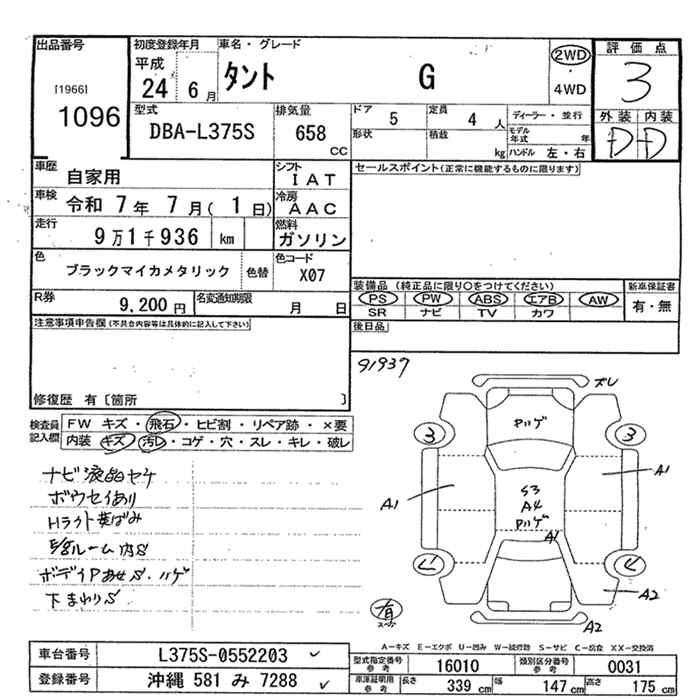 出品番号
[1966]
1096
初度登録年月
平成
24年 6月
車名・グレード
タント G
2WD
4WD
評価点
3
外装 内装
D D
型式
DBA-L375S
排気量
658 CC
ドア 5
定員 4人
形状
積載 kg
ディーラー・並行
モデル年式 年
ハンドル 左・右
車歴
自家用
シフト
IAT
セールスポイント(正常に機能するものに限ります)
車検
令和 7年 7月( 1日)
冷房
AAC
走行
9万1千936 km
燃料
ガソリン
色
ブラックマイカメタリック
色替
色コード
X07
装備品 (純正品に限り〇をつけてください)
PS PW ABS エアB AW
SR ナビ TV カワ
新車保証書
有・無
R券
9,200円
名変通知期限
月 日
後日品
注意事項申告欄(不具合内容等は具体的に記入して下さい)
修復歴 有〔箇所 〕
91937
検査員記入欄
FW キズ・飛石・ヒビ割・リペア跡・×要
内装 キズ・汚レ・コゲ・穴・スレ・キレ・破レ
ナビ液晶ヤケ
ボウセイあり
Hライト黄ばみ
ボディ
下まわりS
ズレ
Pハゲ
3
3
A1
A1
S3
A4
Pハゲ
A1
A2
A2
有
A-キズ E-エクボ U-凹み W-補修跡 S-サビ C-腐食 XX-交換済
車台番号
L375S-0552203
登録番号
沖縄 581 み 7288
型式指定番号
参考
16010
類別区分番号
参考
0031
車庫証明用
参考
長さ 339 cm
幅 147 cm
高さ 175 cm